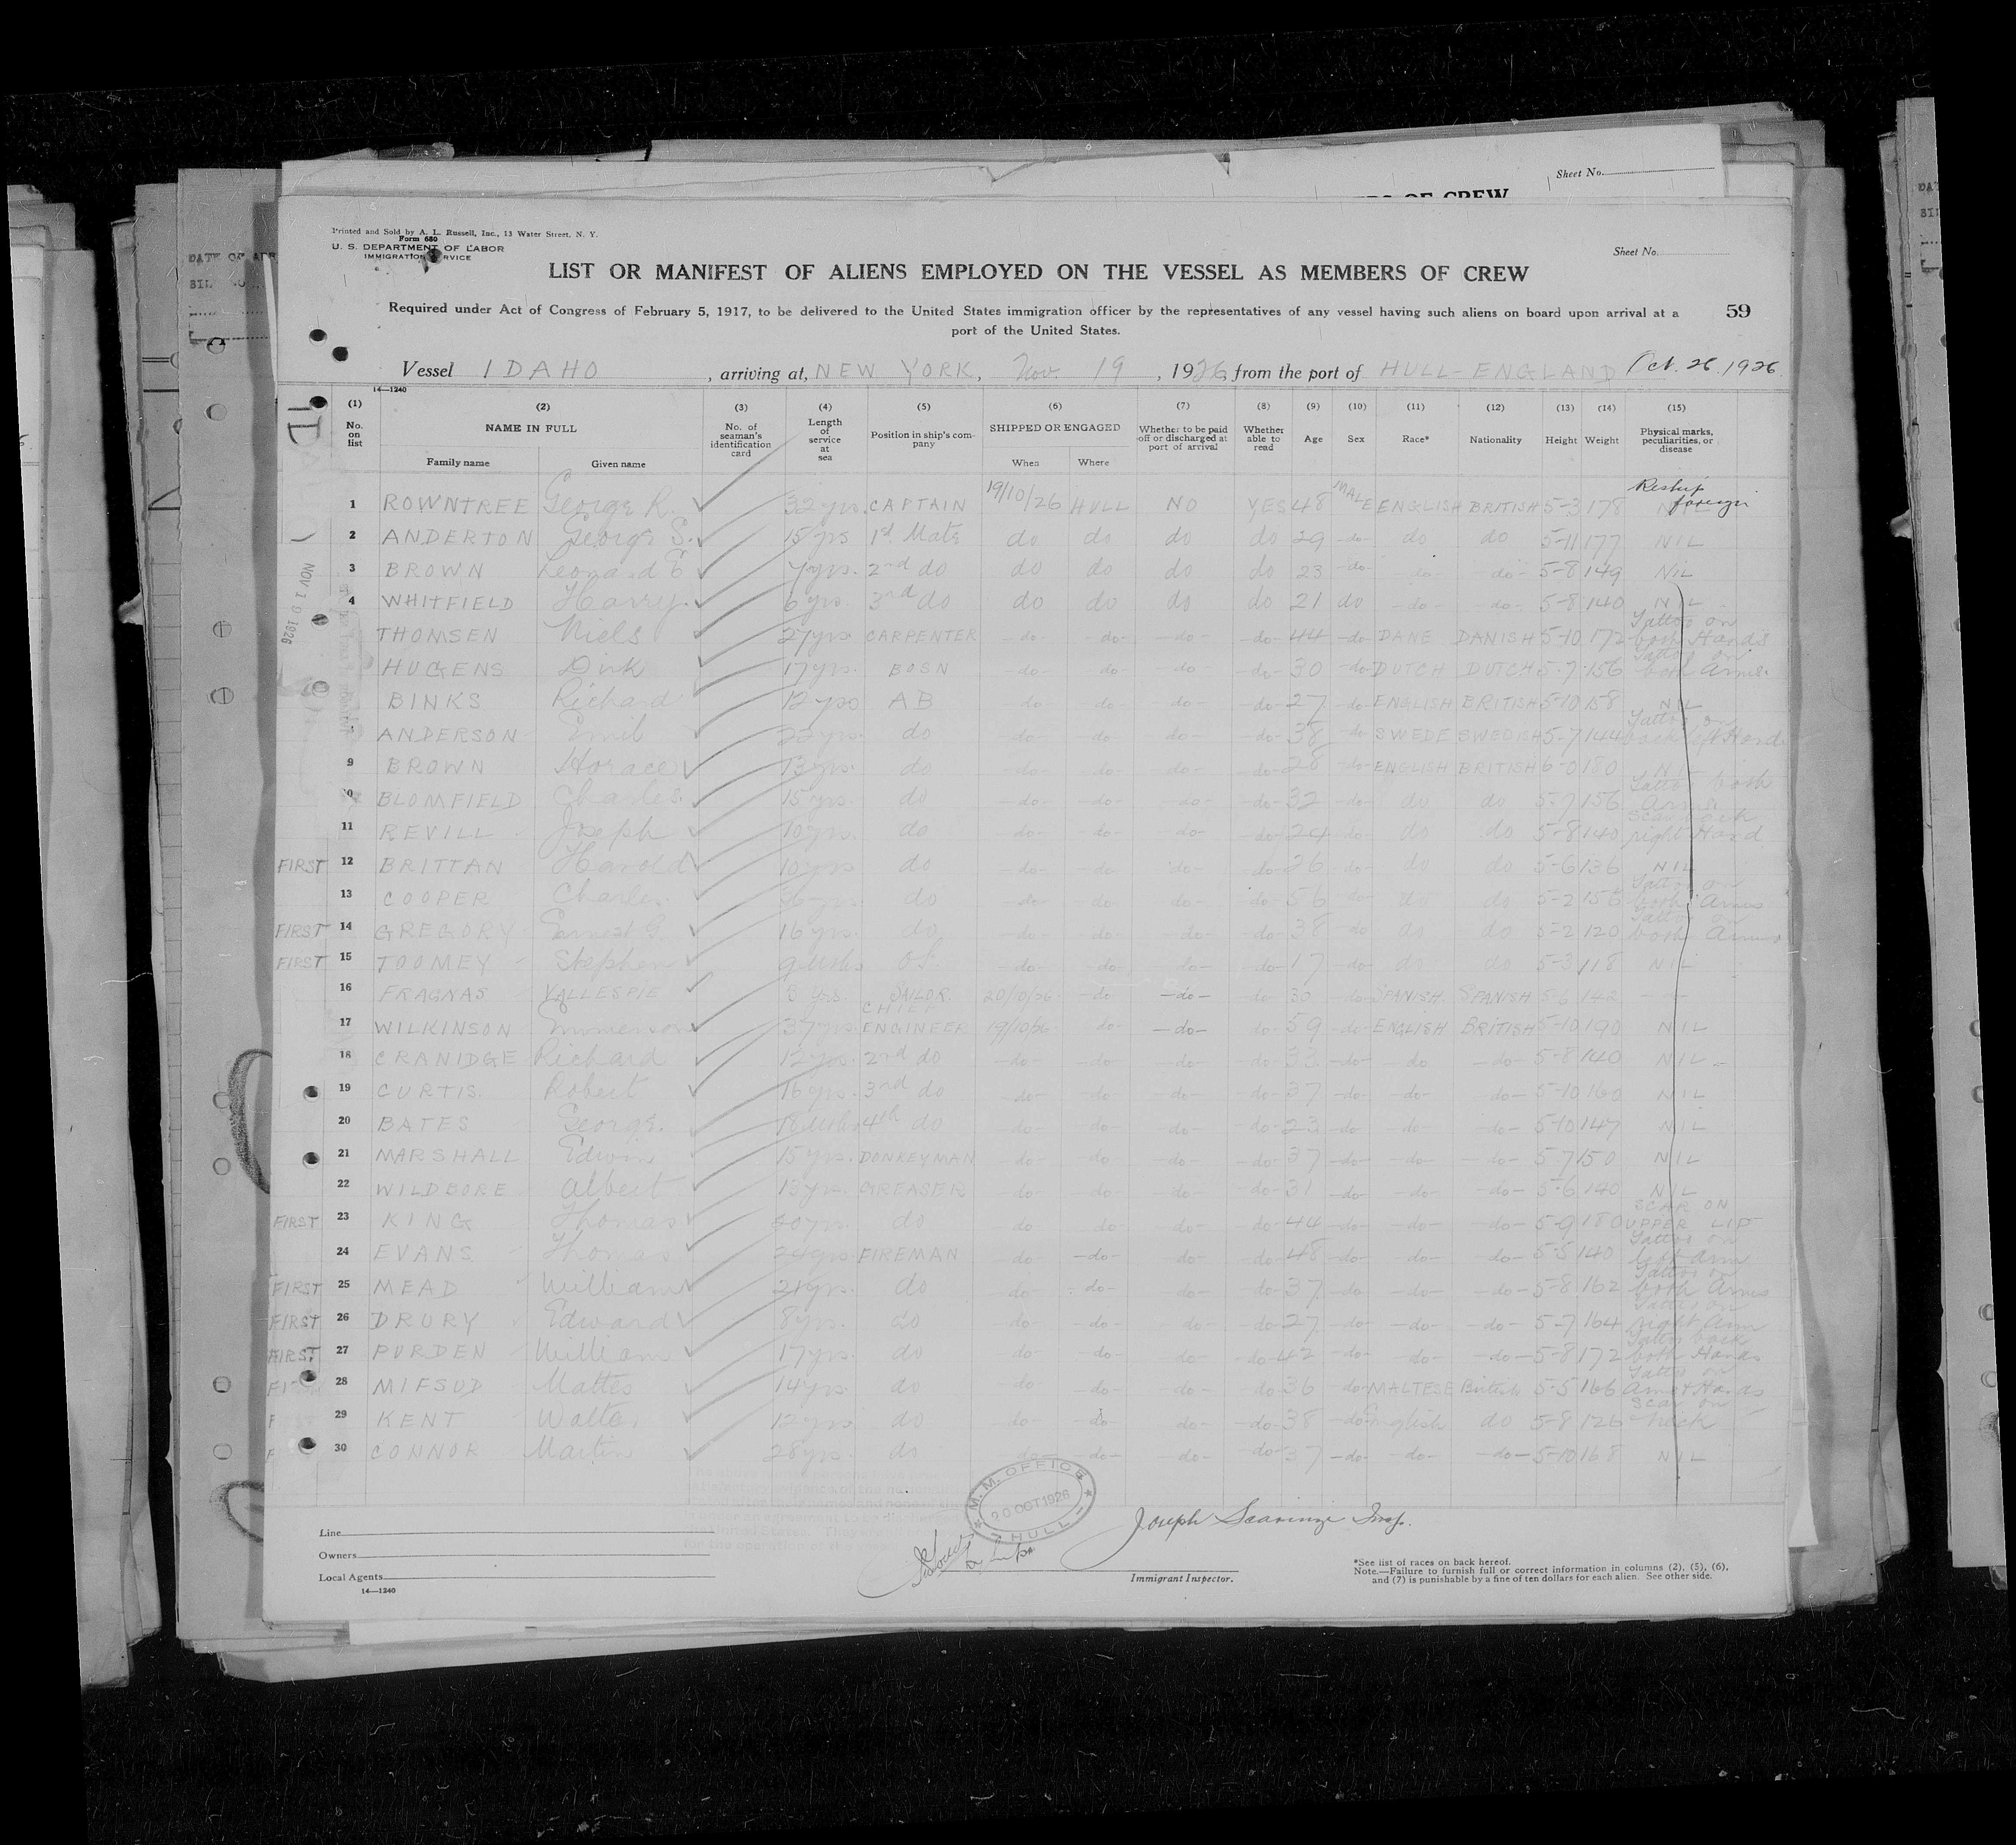 Sheet No.
Printed and Sold by A. L. Russell, Inc., 13 Water Street, N. Y.
Form 680
U. S. DEPARTMENT OF LABOR
IMMIGRATION SERVICE
Sheet No.
LIST OR MANIFEST OF ALIENS EMPLOYED ON THE VESSEL AS MEMBERS OF CREW
Required under Act of Congress of February 5, 1917, to be delivered to the United States immigration officer by the representatives of any vessel having such aliens on board upon arrival at a
port of the United States.
59
Vessel IDAHO, arriving at, NEW YORK, Nov. 19, 1926, from the port of HULL-ENGLAND Oct. 26. 1926
14—1240
(1) (2) (3) (4) (5) (6) (7) (8) (9) (10) (11) (12) (13) (14) (15)
No. on list NAME IN FULL No. of seaman's identification card Length of service at sea Position in ship's company SHIPPED OR ENGAGED Whether to be paid off or discharged at port of arrival Whether able to read Age Sex Race* Nationality Height Weight Physical marks, peculiarities, or disease
Family name Given name When Where
1 ROWNTREE George R. 32 yrs. CAPTAIN 19/10/26 HULL NO YES 48 MALE ENGLISH BRITISH 5-3 178 NIL Reship foreign
2 ANDERTON George S. 15 yrs 1st Mate do do do do 29 -do- do do 5-11 177 NIL
3 BROWN Leonard E 7 yrs. 2nd do do do do do 23 -do- -do- -do- 5-8 149 NIL
4 WHITFIELD Harry 6 yrs. 3rd do do do do do 21 do -do- -do- 5-8 140 NIL
THOMSEN Niels 27 yrs CARPENTER -do- -do- -do- -do- 44 -do- DANE DANISH 5-10 172 Tattoo on both Hands
HUGENS Dirk 17 yrs. BOSN -do- -do- -do- -do- 30 -do- DUTCH DUTCH 5-7 156 Tattoo on both Arms.
BINKS Richard 12 yrs AB -do- -do- -do- -do- 27 -do- ENGLISH BRITISH 5-10 158 NIL
ANDERSON Emil 22 yrs. do -do- -do- -do- -do- 38 -do- SWEDE SWEDISH 5-7 144 Tattoo on back left Hand.
9 BROWN Horace 13 yrs. do -do- -do- -do- -do- 28 -do- ENGLISH BRITISH 6-0 180 NIL
10 BLOMFIELD Charles. 15 yrs. do -do- -do- -do- -do- 32 -do- do do 5-7 156 Tattoo both Arms
11 REVILL Joseph 10 yrs. do -do- -do- -do- -do- 24 -do- do do 5-8 140 Scar back right Hand
FIRST 12 BRITTAN Harold 10 yrs do -do- -do- -do- -do- 26 -do- do do 5-6 136 NIL
13 COOPER Charles. 36 yrs. do -do- -do- -do- -do- 56 -do- do do 5-2 156 Tattoo on both Arms
FIRST 14 GREGORY Ernest G. 16 yrs. do -do- -do- -do- -do- 38 -do- do do 5-2 120 Tattoo on both Arms
FIRST 15 TOOMEY Stephen 9 Mths OS -do- -do- -do- -do- 17 -do- do do 5-3 118 NIL
16 FRAGNAS VALLESPIE 8 yrs. SAILOR 20/10/26 -do- -do- -do- 30 -do- SPANISH. SPANISH 5-6 142 -
17 WILKINSON Emmerson 37 yrs CHIEF ENGINEER 19/10/26 do -do- do- 59 -do- ENGLISH BRITISH 5-10 190 NIL
18 CRANIDGE Richard 12 yrs. 2nd do -do- -do- -do- -do- 33 -do- -do -do- 5-8 140 NIL
19 CURTIS. Robert 16 yrs. 3rd do -do- -do- -do- -do- 37 -do- -do- -do- 5-10 160 NIL
20 BATES George. 18 Mths 4th do -do- -do- -do- -do- 23 -do- -do- -do- 5-10 147 NIL
21 MARSHALL Edwin 15 yrs. DONKEYMAN -do -do- -do- -do- 37 -do- -do- -do- 5-7 150 NIL
22 WILDBORE Albert 13 yrs. GREASER -do- -do- -do- -do- 31 -do- -do- -do- 5-6 140 NIL
FIRST 23 KING Thomas 20 yrs. do do -do- -do- -do- 44 -do- -do- -do- 5-9 180 SCAR ON UPPER LIP
24 EVANS Thomas 24 yrs FIREMAN do -do- -do- -do- 48 -do- -do- -do- 5-5 140 Tattoo on left Arm
FIRST 25 MEAD William 21 yrs. do do -do- -do- -do- 37 -do- -do- -do- 5-8 162 Tattoo on both Arms
FIRST 26 DRURY Edward 8 yrs. do do -do- -do- -do- 27 -do- -do- -do- 5-7 164 Tattoo on right Arm
FIRST 27 PURDEN William 17 yrs. do do -do- -do- -do- 42 -do- -do- -do- 5-8 172 Tattoo back both Hands
28 MIFSUD Matteo 14 yrs. do do -do- -do- do 36 -do- MALTESE British 5-5 166 Tattoo on Arms & Hands
29 KENT Walter 12 yrs do do- -do- -do- -do- 38 -do- English do 5-8 126 Scar on neck
30 CONNOR Martin 28 yrs. do -do- -do- -do- -do- 37 -do- -do- -do- 5-10 168 NIL
NOV 19 1926
M. M. OFFICE
20 OCT 1926
HULL
Joseph Scavinzi Insp.
Line
Owners
Local Agents
14—1240
Immigrant Inspector.
*See list of races on back hereof.
Note.—Failure to furnish full or correct information in columns (2), (5), (6),
and (7) is punishable by a fine of ten dollars for each alien. See other side.